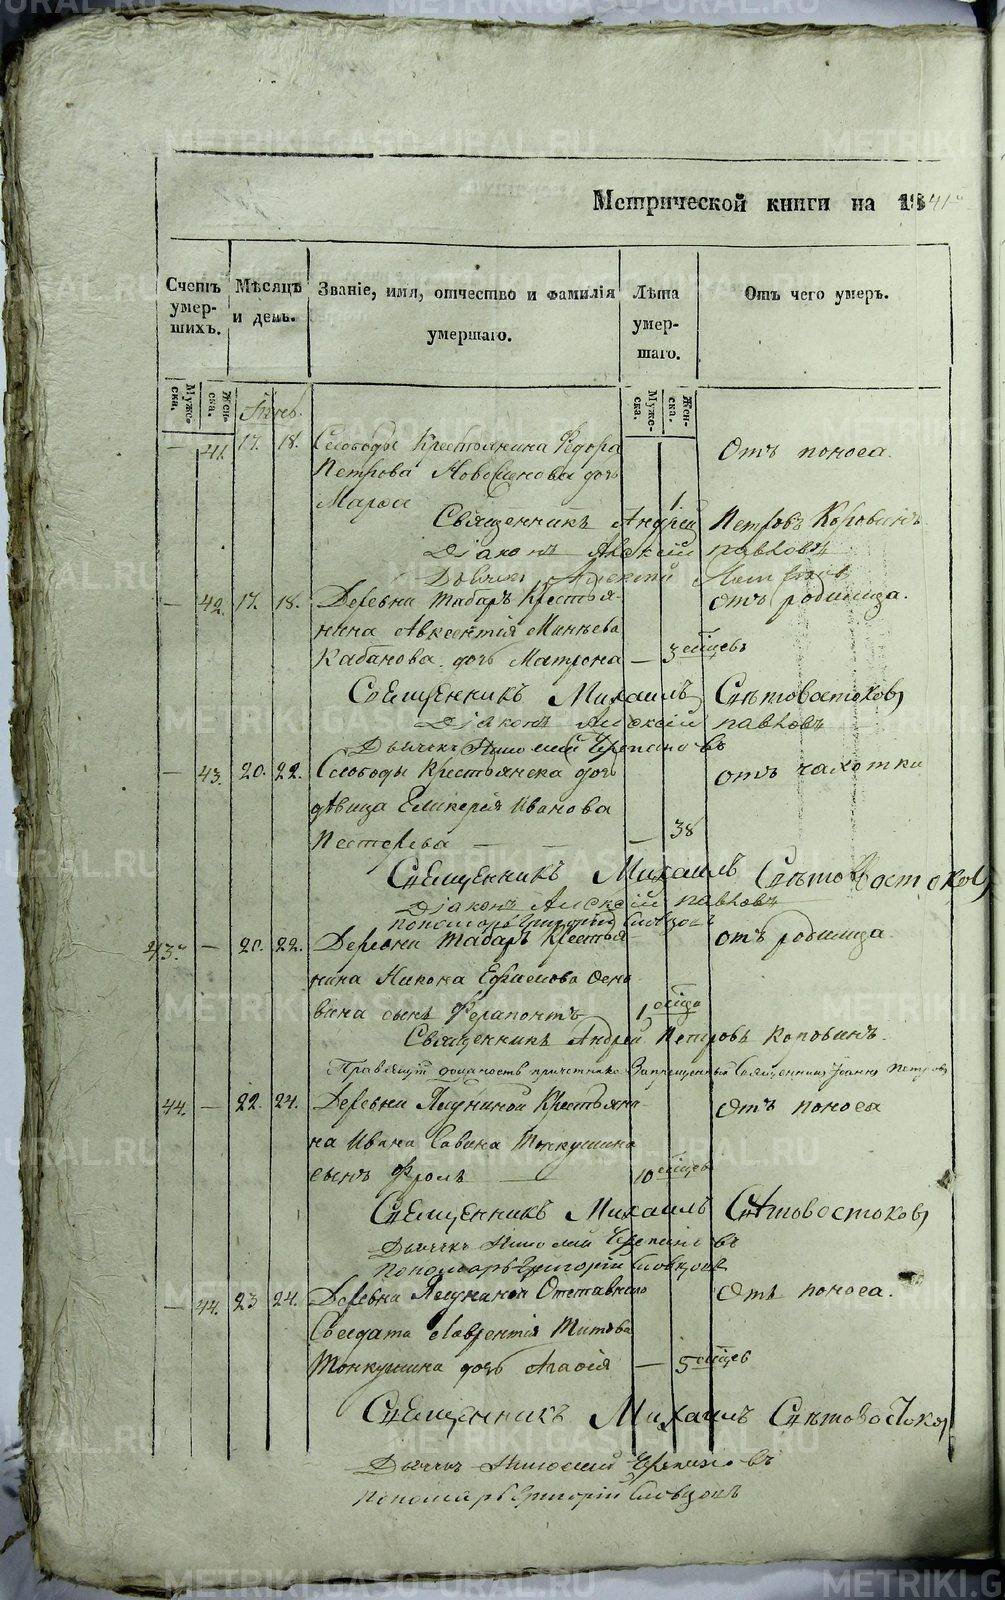 Метрической книги на 1841
Счетъ умершихъ.
Мѣсяцъ и день.
Званіе, имя, отчество и фамилія умершаго.
Лѣта умершаго.
Отъ чего умеръ.
Мужеска.
Женска.
Мужеска.
Женска.
— 41. 17. 18. Слободы Крестьянина Ѳедора
Петрова Новоселова дочь
Марѳа 1 Отъ поноса.
Священникъ Андрей Петровъ Коровинъ
Діаконъ Алексій Павловъ
Дьячекъ Алексій
— 42. 17. 18. Деревни Табаръ Крестья-
нина Авксентія Минѣева
Кабанова дочь Матрона — 3 мѣсцевъ отъ родимца.
Священникъ Михаилъ Свѣтовостоковъ
Діаконъ Алексій Павловъ
Дьячекъ Николай Черепановъ
— 43. 20. 22. Слободы Крестьянска дочь
дѣвица Гликерія Иванова
Пестерева — — — 38 отъ чахотки
Священникъ Михаилъ Свѣтовостоковъ
Діаконъ Алексій Павловъ
Пономарь Григорій Словцовъ
43. — 20. 22. Деревни Табаръ Крестья-
нина Никона Ефимова
сынъ Ферапонтъ 1 мѣсца отъ родимца.
Священникъ Андрей Петровъ Коровинъ.
Правящій должность причетника Запрещенный Священникъ Іоаннъ Петровъ
44. — 22. 24. Деревни Крестьяни-
на Ивана Савина Тонкушина
сынъ Фролъ — 10 мѣсцевъ Отъ поноса
Священникъ Михаилъ Свѣтовостоковъ
Дьячекъ Николай Черепановъ
Пономарь Григорій Словцовъ
— 44. 23 24. Деревни Отставнаго
Солдата Лаврентія Титова
Тонкушина дочь Агаѳія — 5 мѣсцевъ Отъ поноса.
Священникъ Михаилъ Свѣтовостоков
Дьячекъ Николай Черепановъ
Пономарь Григорій Словцовъ
METRIKI.GASO-URAL.RU